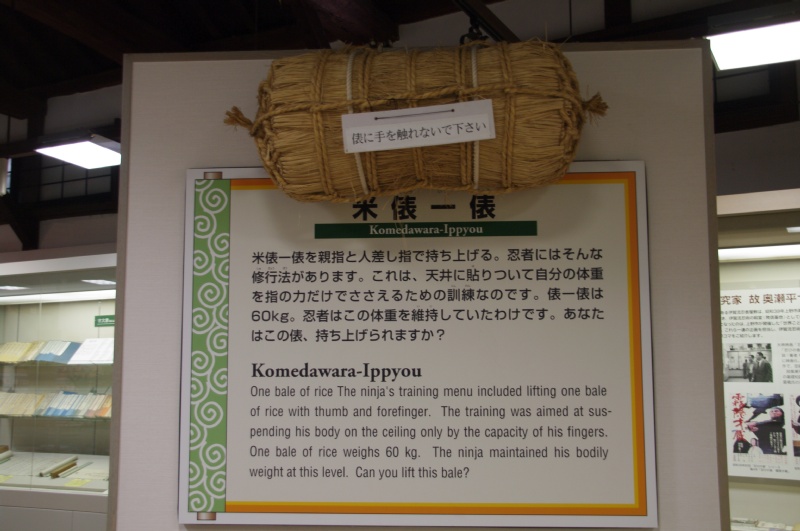 俵に手を触れないで下さい
米俵一俵
Komedawara-Ippyou
米俵一俵を親指と人差し指で持ち上げる。忍者にはそんな
修行法があります。これは、天井に貼りついて自分の体重
を指の力だけでささえるための訓練なのです。俵一俵は
60kg。忍者はこの体重を維持していたわけです。あなた
はこの俵、持ち上げられますか？
Komedawara-Ippyou
One bale of rice The ninja's training menu included lifting one bale
of rice with thumb and forefinger. The training was aimed at sus-
pending his body on the ceiling only by the capacity of his fingers.
One bale of rice weighs 60 kg. The ninja maintained his bodily
weight at this level. Can you lift this bale?
究家 故 奥瀬平